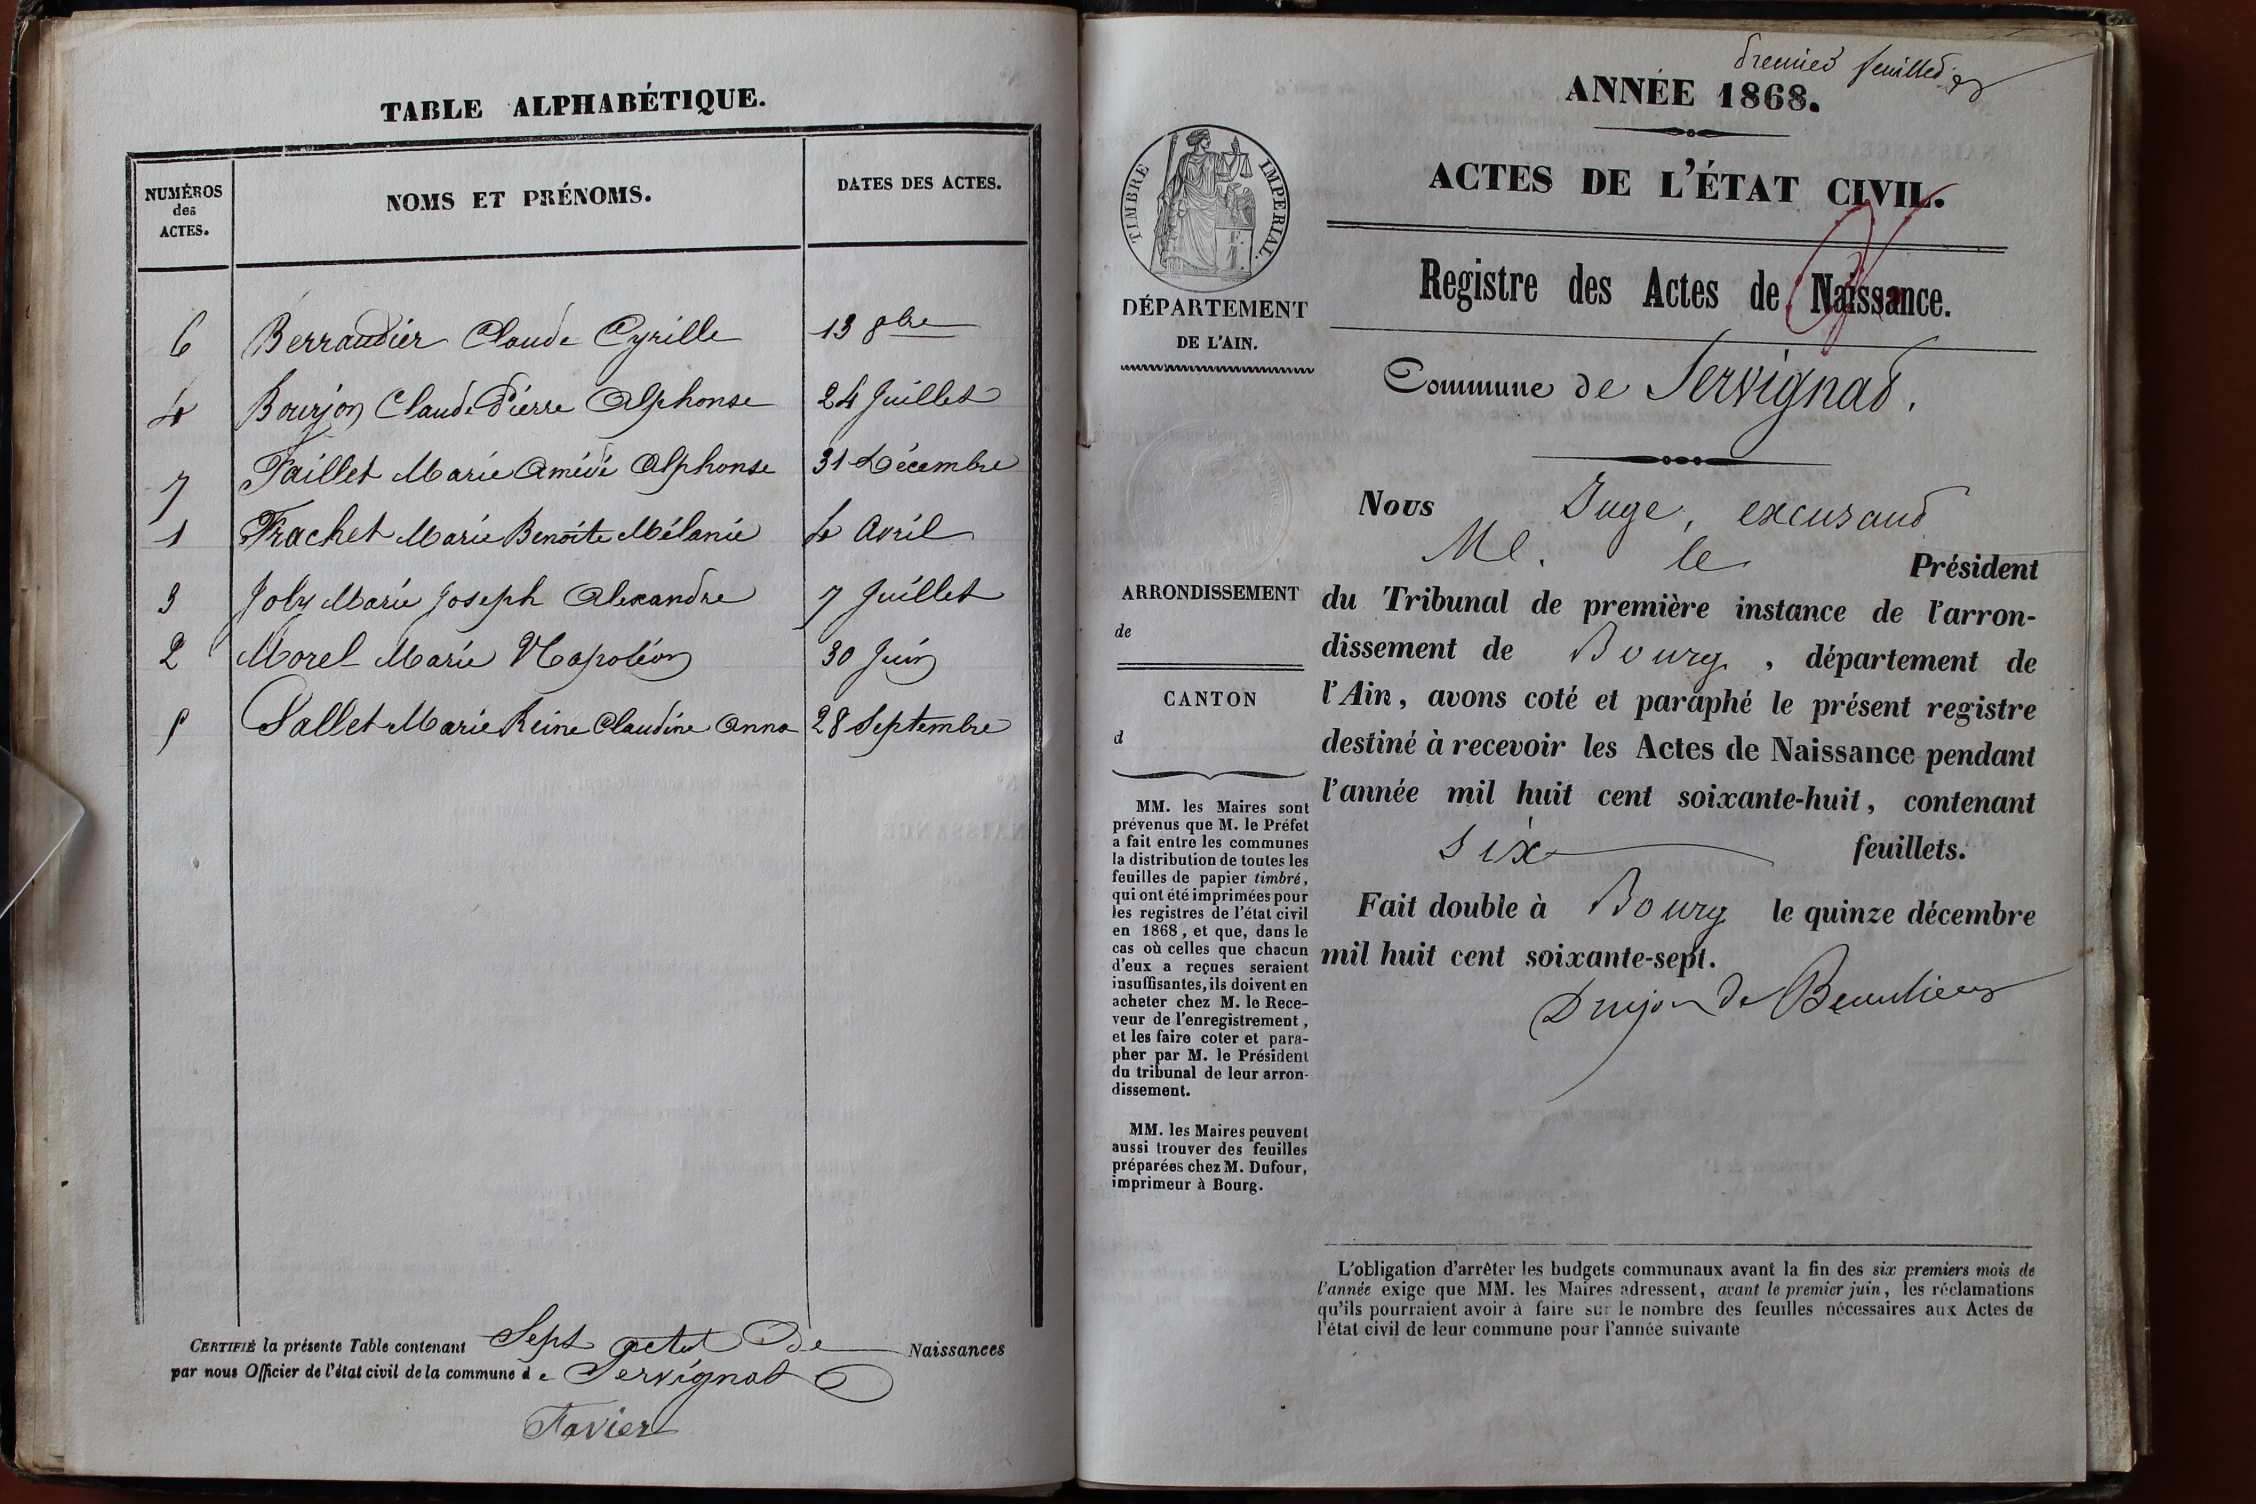 TABLE ALPHABÉTIQUE.
NUMÉROS des ACTES.
NOMS ET PRÉNOMS.
DATES DES ACTES.
6 Berraudier Claude Cyrille 13 8bre
4 Bourjon Claude Pierre Alphonse 24 Juillet
7 Faillet Marie Amédé Alphonse 31 Décembre
1 Frachet Marie Benoîte Mélanie 4 Avril
3 Joly Marie Joseph Alexandre 7 Juillet
2 Morel Marie Napoléon 30 Juin
5 Sallet Marie Reine Claudine Anna 28 Septembre
CERTIFIÉ la présente Table contenant Sept actes de Naissances
par nous Officier de l'état civil de la commune de Servignat
Favier
Premier feuillet
ANNÉE 1868.
ACTES DE L'ÉTAT CIVIL.
Registre des Actes de Naissance.
Commune de Servignat.
TIMBRE IMPERIAL.
DÉPARTEMENT
DE L'AIN.
ARRONDISSEMENT
de
CANTON
d
MM. les Maires sont
prévenus que M. le Préfet
a fait entre les communes
la distribution de toutes les
feuilles de papier timbré,
qui ont été imprimées pour
les registres de l'état civil
en 1868, et que, dans le
cas où celles que chacun
d'eux a reçues seraient
insuffisantes, ils doivent en
acheter chez M. le Rece-
veur de l'enregistrement,
et les faire coter et para-
pher par M. le Président
du tribunal de leur arron-
dissement.
MM. les Maires peuvent
aussi trouver des feuilles
préparées chez M. Dufour,
imprimeur à Bourg.
Nous Juge, excusant
M. le Président
du Tribunal de première instance de l'arron-
dissement de Bourg, département de
l'Ain, avons coté et paraphé le présent registre
destiné à recevoir les Actes de Naissance pendant
l'année mil huit cent soixante-huit, contenant
six feuillets.
Fait double à Bourg le quinze décembre
mil huit cent soixante-sept.
Drujon de Beaulieu
L'obligation d'arrêter les budgets communaux avant la fin des six premiers mois de
l'année exige que MM. les Maires adressent, avant le premier juin, les réclamations
qu'ils pourraient avoir à faire sur le nombre des feuilles nécessaires aux Actes de
l'état civil de leur commune pour l'année suivante